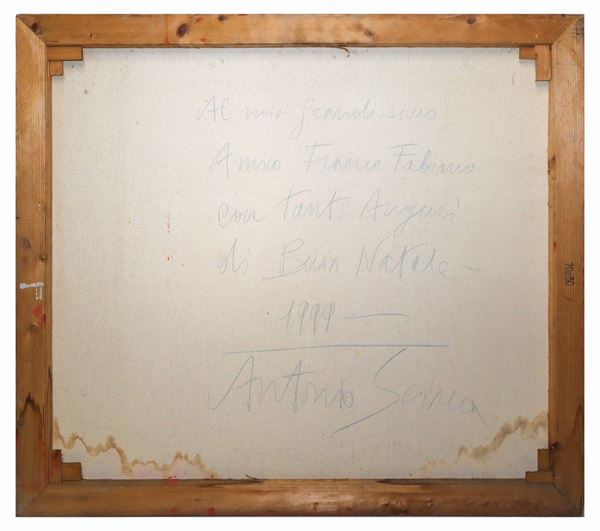 Al mio grandissimo
Amico Franco Fabiano
con tanti Auguri
di Buon Natale -
1999 —
Antonio Sciacca
70x80